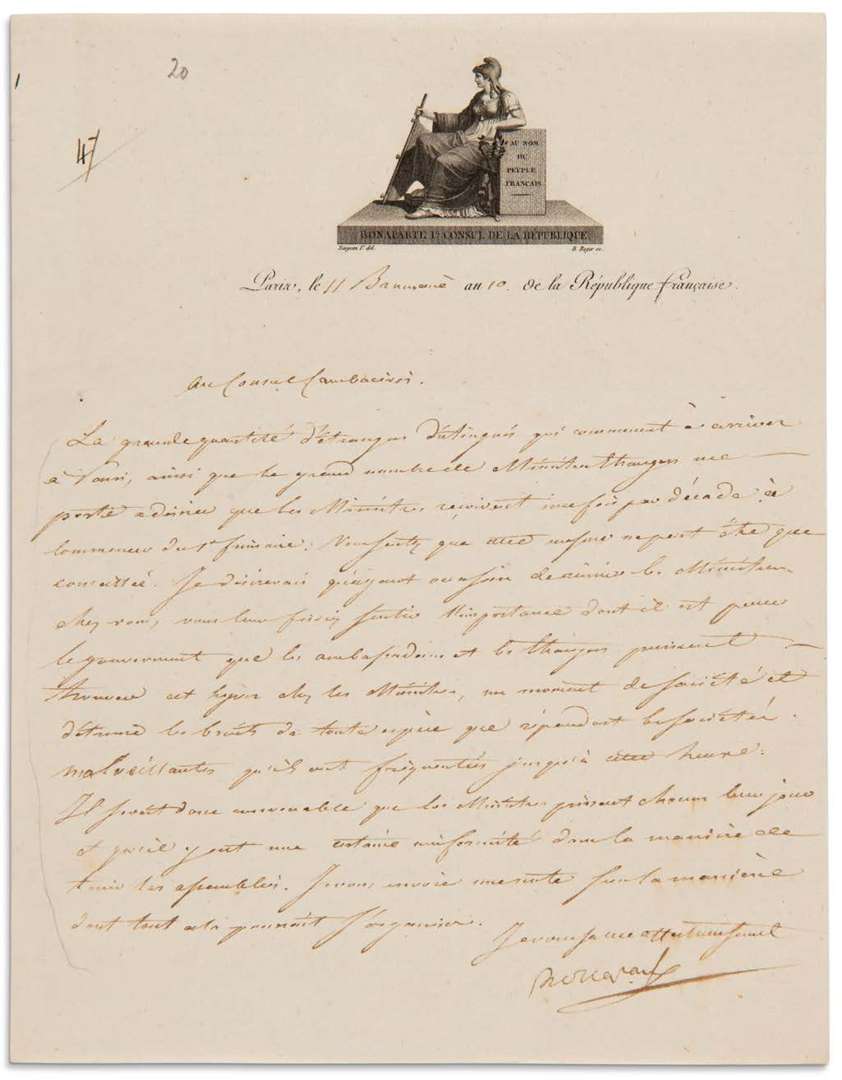 20
47
AU NOM
DU
PEUPLE
FRANÇAIS
BONAPARTE 1er CONSUL DE LA RÉPUBLIQUE
B. Roger sc.
Paris, le 11 Brumaire an 10. de la République française.
Au Consul Cambacérès.
La grande quantité d'étrangers distingués qui commencent à arriver
à Paris, ainsi que le grand nombre de Ministres étrangers me
porte à désirer que les Ministres reçoivent une fois par décade à
commencer du 1er frimaire. Vous sentez que cette mesure ne peut être que
conseillée. Je désirerais qu'ayant occasion de réunir les Ministres
chez vous, vous leur fissiez sentir l'importance dont il est pour
le gouvernement que les ambassadeurs et les étrangers puissent
trouver cet hyver chez les Ministres, un moment de société et
détruire les bruits de toute espèce que répandent les sociétés
malveillantes qu'ils ont fréquentés jusqu'à cette heure.
Il serait donc convenable que les Ministres puissent choisir leur jour
et qu'il y eut une certaine uniformité dans la manière de
tenir les assemblées. Je vous envoie une note sur la manière
dont tout cela pourrait s'organiser.
Je vous salue affectueusement
Bonaparte